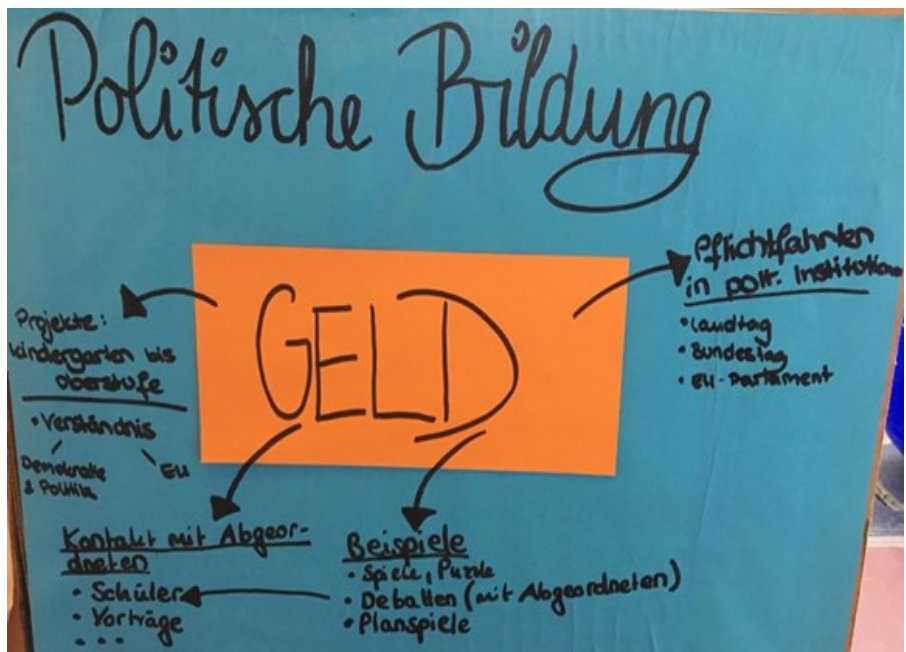 Politische Bildung
GELD
Projekte:
kindergarten bis
oberstufe
• Verständnis
Demokratie
& Politik
EU
Pflichtfahrten
in polit. Institutione
• Landtag
• Bundestag
• EU-Parlament
Kontakt mit Abgeor-
dneten
• Schüler
• Vorträge
• • •
Beispiele
• Spiele, Puzzle
• Debatten (mit Abgeordneten)
• Planspiele